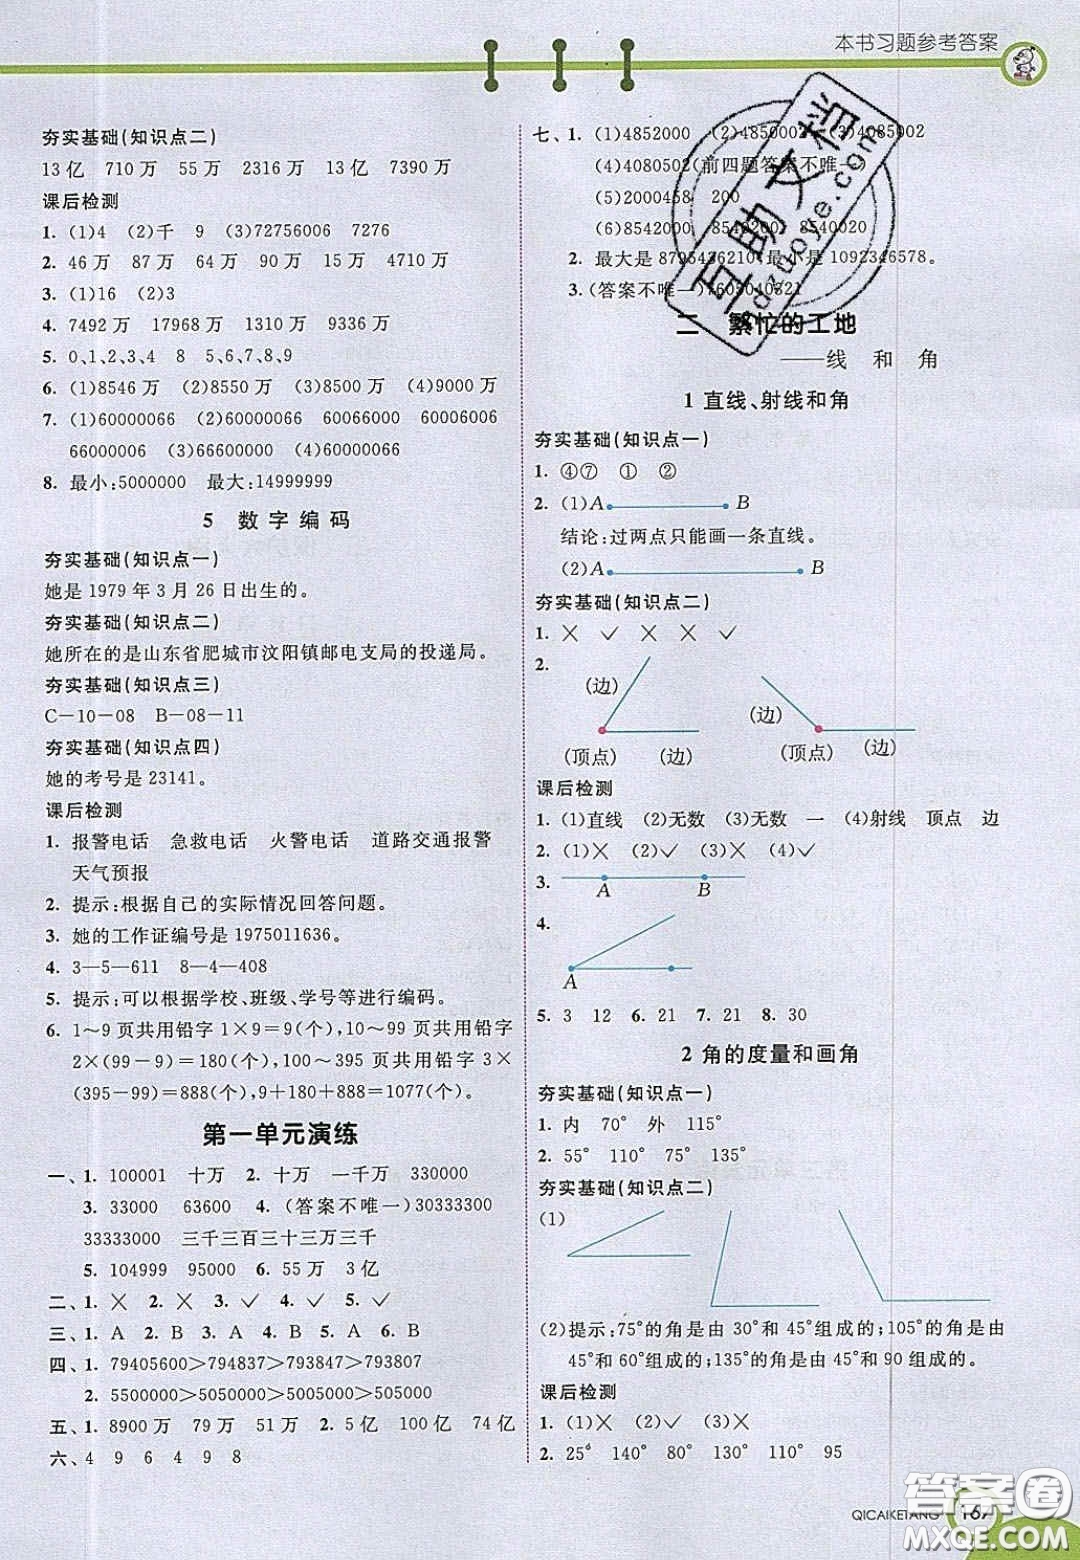 本书习题参考答案
夯实基础(知识点二)
13亿 710万 55万 2316万 13亿 7390万
课后检测
1. (1)4 (2)千 9 (3)72756006 7276
2. 46万 87万 64万 90万 15万 4710万
3. (1)16 (2)3
4. 7492万 17968万 1310万 9336万
5. 0、1、2、3、4 8 5、6、7、8、9
6. (1)8546万 (2)8550万 (3)8500万 (4)9000万
7. (1)60000066 (2)60000066 60066000 60006006
66000006 (3)66000000 (4)60006006
8. 最小:5000000 最大:14999999
5 数字编码
夯实基础(知识点一)
她是1979年3月26日出生的。
夯实基础(知识点二)
她所在的是山东省肥城市汶阳镇邮电支局的投递局。
夯实基础(知识点三)
C—10—08 B—08—11
夯实基础(知识点四)
她的考号是23141。
课后检测
1. 报警电话 急救电话 火警电话 道路交通报警
天气预报
2. 提示:根据自己的实际情况回答问题。
3. 她的工作证编号是1975011636。
4. 3—5—611 8—4—408
5. 提示:可以根据学校、班级、学号等进行编码。
6. 1～9页共用铅字1×9=9(个),10～99页共用铅字
2×(99-9)=180(个),100～395页共用铅字3×
(395-99)=888(个),9+180+888=1077(个)。
第一单元演练
一、1. 100001 十万 2. 十万 一千万 330000
3. 33000 63600 4. (答案不唯一)30333300
33333000 三千三百三十三万三千
5. 104999 95000 6. 55万 3亿
二、1. ✕ 2. ✕ 3. ✓ 4. ✓ 5. ✓
三、1. A 2. B 3. A 4. A 5. A 6. B
四、1. 79405600>794837>793847>793807
2. 5500000>5050000>5005000>505000
五、1. 8900万 79万 51万 2. 5亿 100亿 74亿
六、4 9 6 4 9 8
七、1. (1)4852000 (2)4850002 (3)4085002
(4)4080502(前四题答案不唯一)
(5)2000458 200
(6)8542000 8542000 8540020
2. 最大是8795436210,最小是1092346578。
3. (答案不唯一)7605040321
二 繁忙的工地
——线 和 角
1 直线、射线和角
夯实基础(知识点一)
1. ④⑦ ① ②
2. (1)A B
结论:过两点只能画一条直线。
(2)A B
夯实基础(知识点二)
1. ✕ ✓ ✕ ✕ ✓
2.
(边) (顶点) (边) (边) (顶点) (边)
课后检测
1. (1)直线 (2)无数 (3)无数 一 (4)射线 顶点 边
2. (1)✕ (2)✓ (3)✕ (4)✓
3. A B
4.
A
5. 3 12 6. 21 7. 21 8. 30
2 角的度量和画角
夯实基础(知识点一)
1. 内 70° 外 115°
2. 55° 110° 75° 135°
夯实基础(知识点二)
(1)
(2)提示:75°的角是由30°和45°组成的;105°的角是由
45°和60°组成的;135°的角是由45°和90组成的。
课后检测
1. (1)✕ (2)✓ (3)✕
2. 25° 140° 80° 130° 110° 95
QICAIKETANG 167
互助文档
答案圈
MXQE.COM